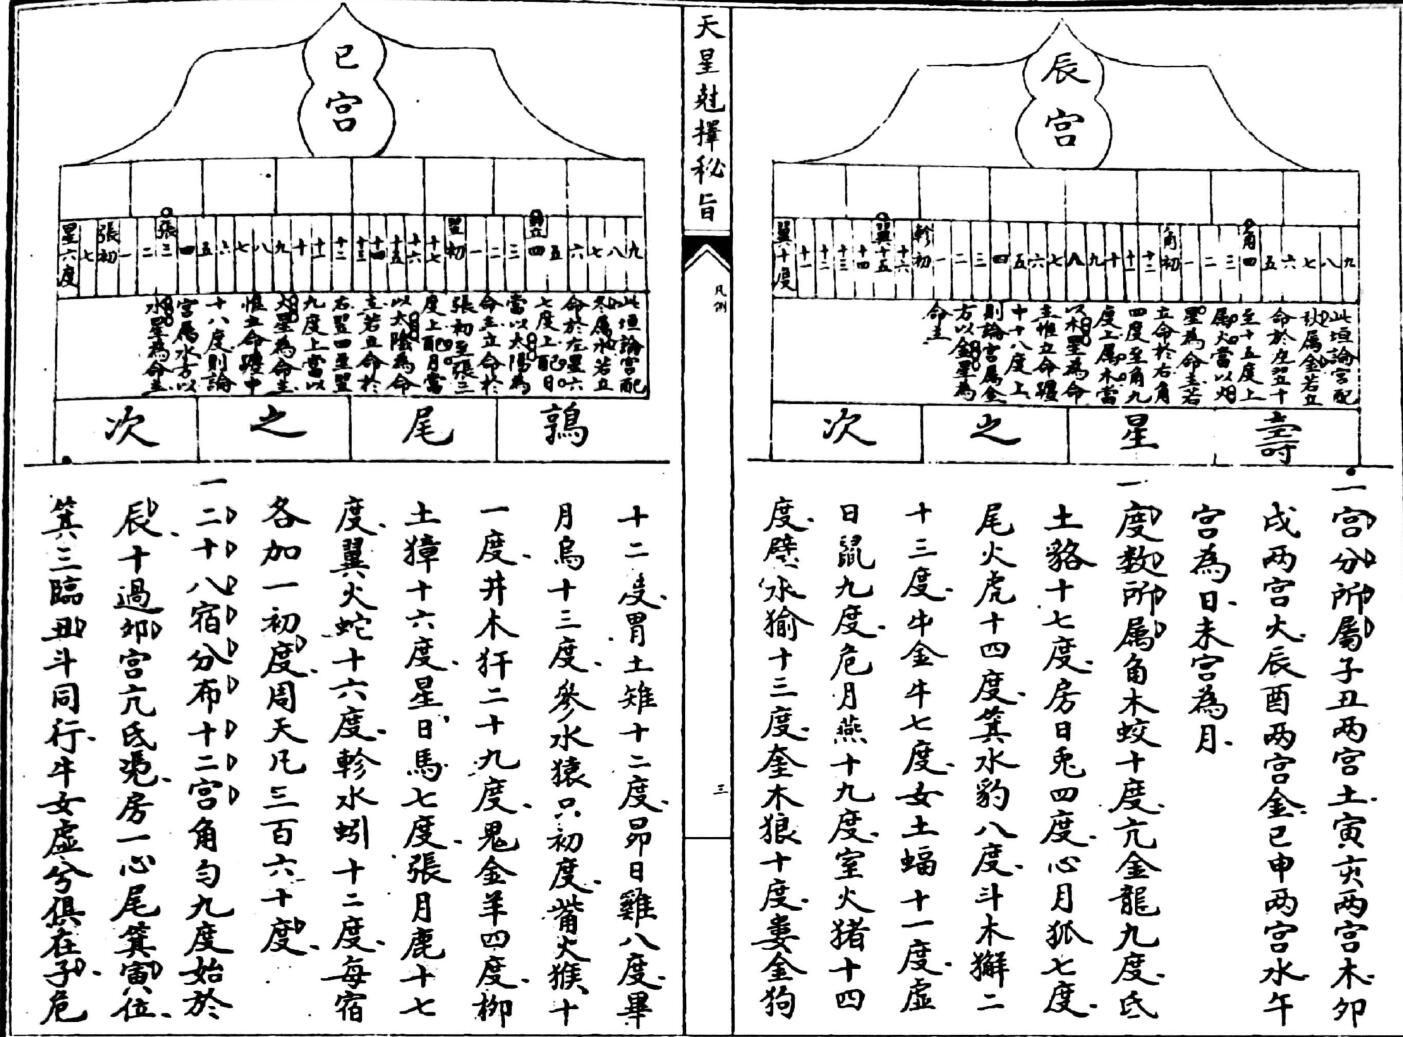 辰宮
九
八
七
六
五
角四
三
二
一
角初
十二
十一
十
九
八
七
六
五
四
三
二
一
軫初
十六
翼十五
十四
十三
十二
十一
翼十度
此垣論宮配
秋属金若立
命於左翌十
至十五度上
属火當以火
星為命主若
立命於右角
四度至角九
度上属木當
以木星為命
主惟立命躔
十十八度上
則論宮属金
方以金星為
命主
壽星之次
一宮分所属子丑两宮土寅亥两宮木卯
戌两宮火辰酉两宮金巳申两宮水午
宮為日未宮為月
一度数所属角木蛟十度亢金龍九度氐
土貉十七度房日兎四度心月狐七度
尾火虎十四度箕水豹八度斗木獬二
十三度牛金牛七度女土蝠十一度虚
日鼠九度危月燕十九度室火猪十四
度壁水㺄十三度奎木狼十度婁金狗
天星尅擇秘旨
凡例
三
巳宮
九
八
七
六
五
翌四
三
二
一
翌初
十七
十六
十五
十四
十三
十二
十一
十
九
八
七
六
五
四
張三
二
一
張初
七
星六度
此垣論宮配
冬属水若立
命於左星六
七度上配日
當以太陽為
命主立命於
張初至張三
度上配月當
以太陰為命
主若立命於
右翌四至翌
九度上當以
火星為命主
惟立命躔中
十八度則論
宮属水方以
水星為命主
鶉尾之次
十二度胃土雉十二度昴日雞八度畢
月烏十三度參水猿只初度觜火猴十
一度井木犴二十九度鬼金羊四度柳
土獐十六度星日馬七度張月鹿十七
度翼火蛇十六度軫水蚓十二度每宿
各加一初度周天凡三百六十度
一二十八宿分布十二宮角勻九度始於
辰十過卯宮亢氐兎房一心尾箕寅位
箕三臨丑斗同行牛女虚兮俱在子危